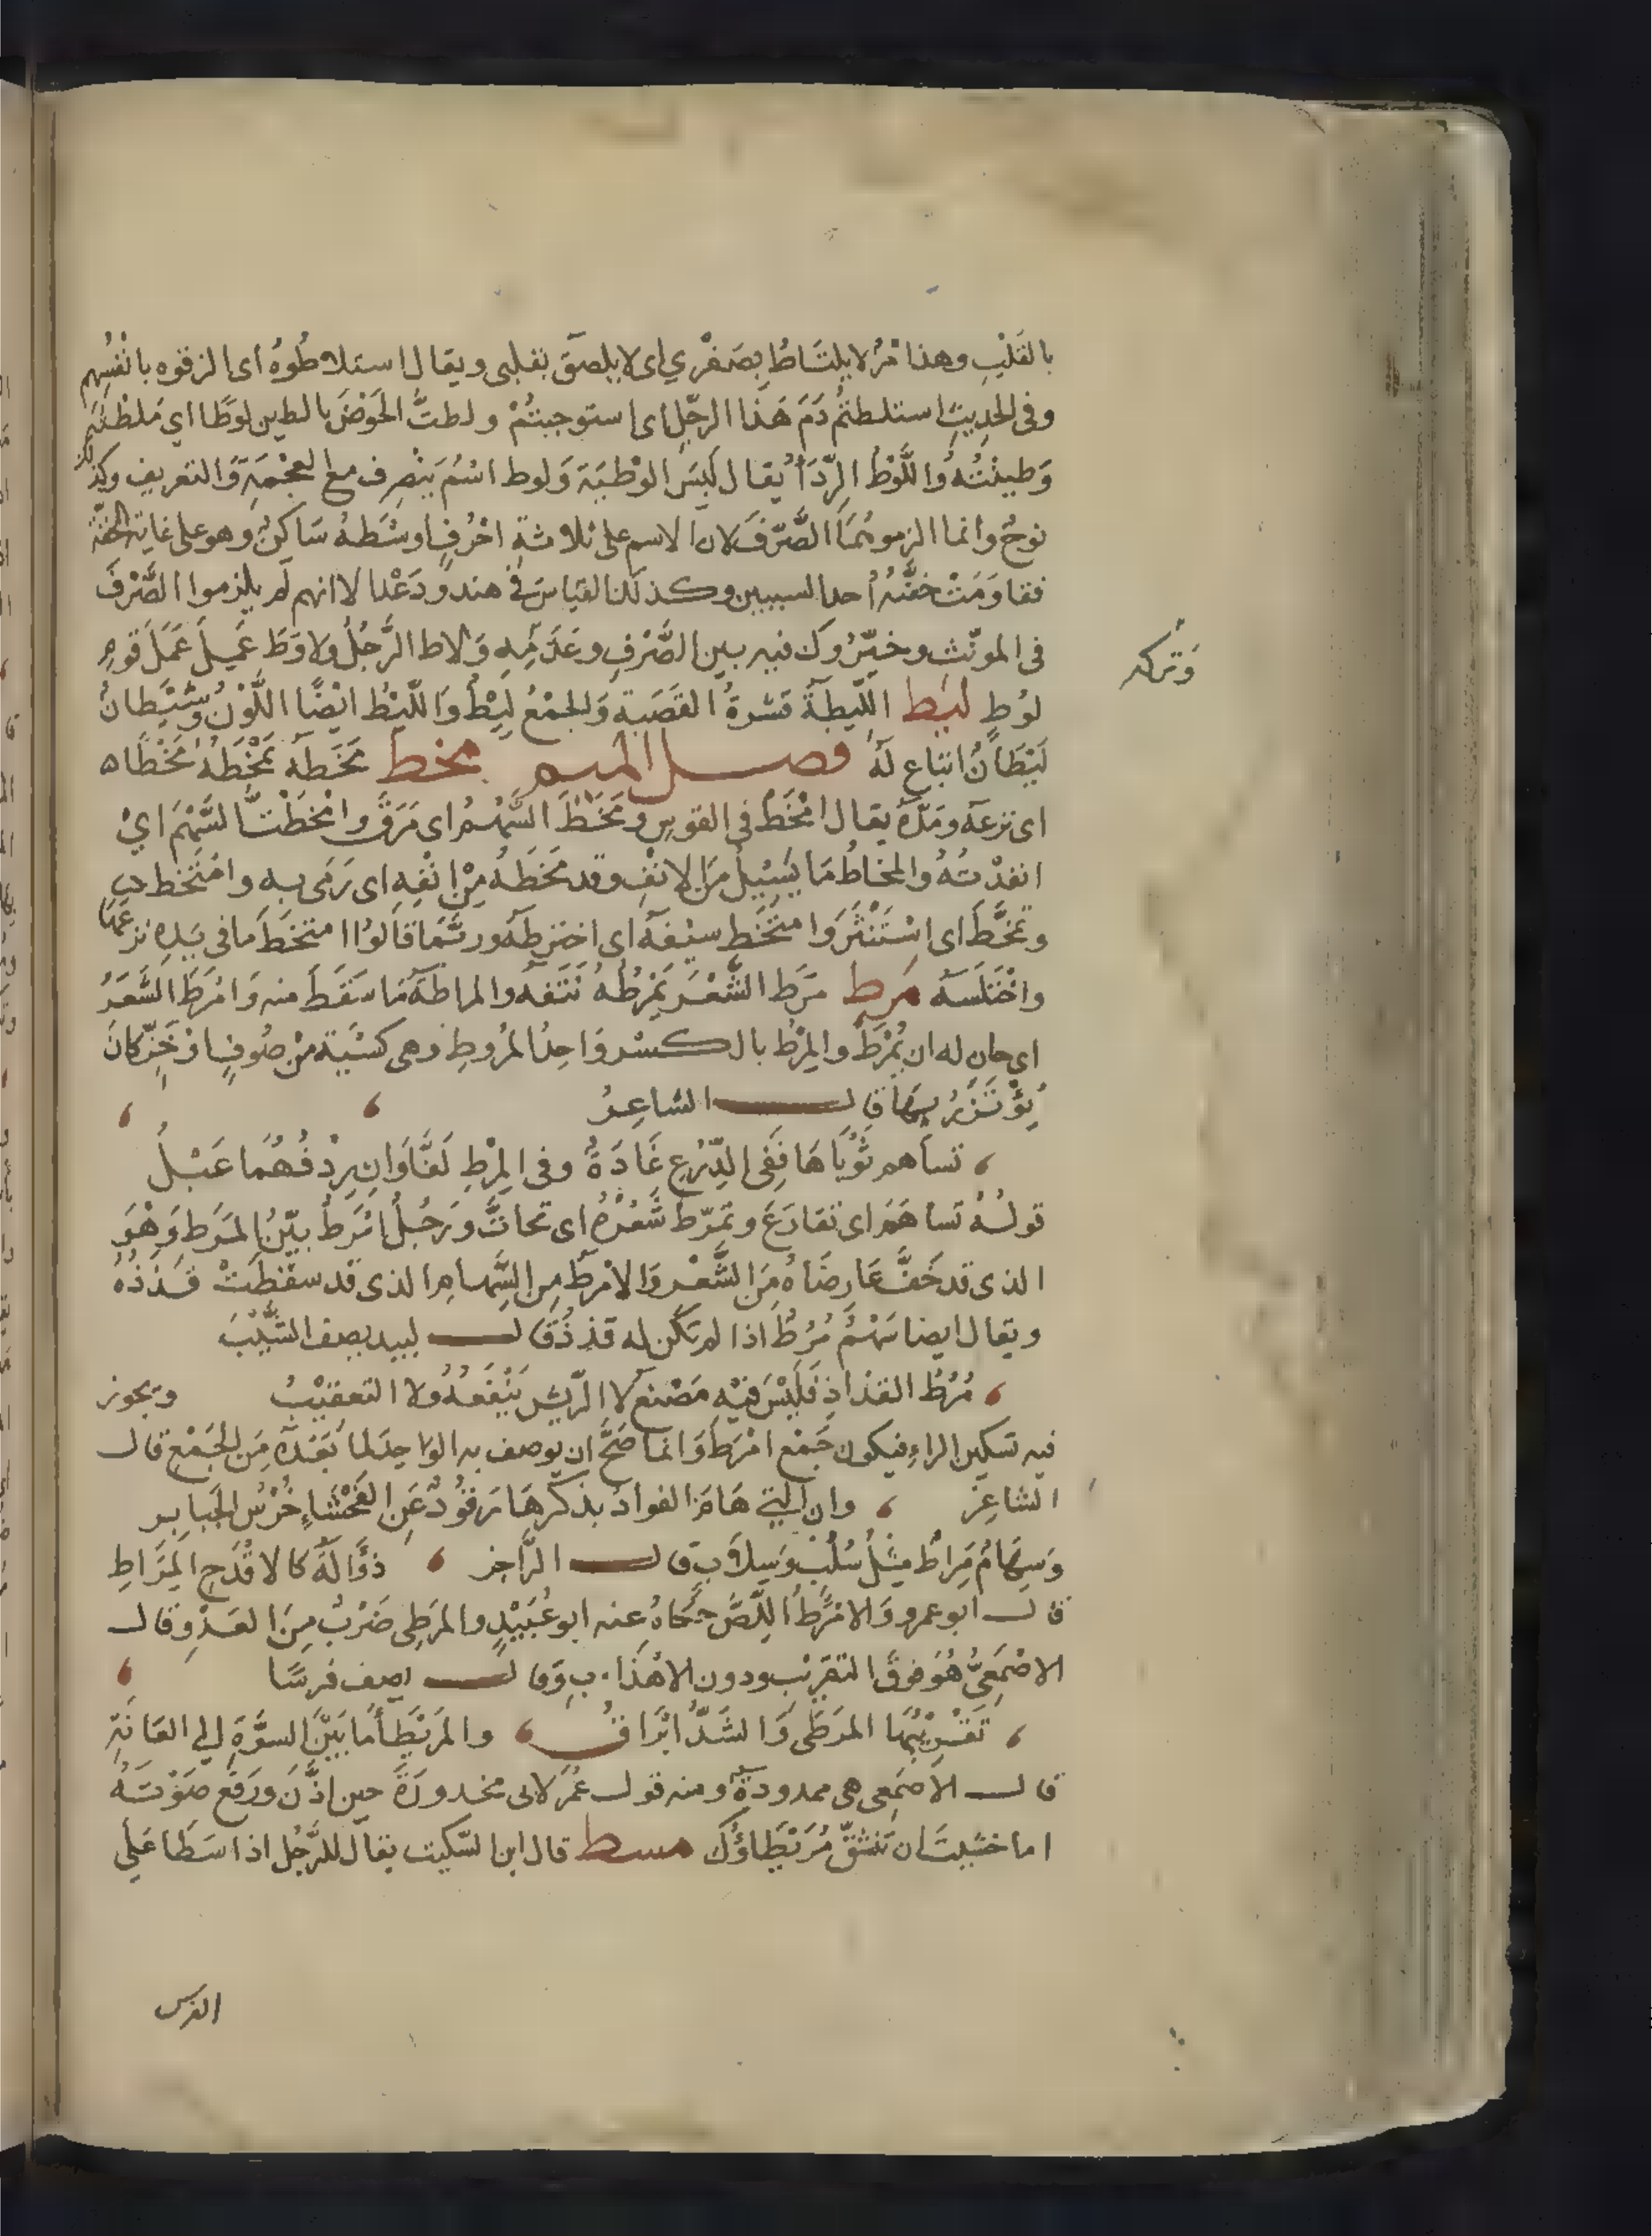 بالقَلْبِ وهذا امْرٌ لا يلتَاطُ بِصَفْرِي اى لا يلصَقُ بقلبى ويقال استلاطُوهُ اى الزقوه بانْفُسِهم
وفى الحدِيثِ استلطتُم دَمَ هَذا الرجُلِ اى استوجبتُمْ ولطتُ الحَوْضَ بالطين لوطًا اي مَلطتُه
وَطينْتُه وَاللَّوْطُ الرِّدَأُ يقال لَبِسَ لوْطَيْهَ وَلوط اسْمٌ ينْصرِف مع العجْمَةِ وَالتعريف وكذلك
نوحٌ وانما الزموهُمَا الصَّرْفَ لان الاسم على ثلاثةِ احْرُفٍ اوسْطهُ سَاكنٌ وهو على غاية الخفّة
فقاوَمَتْ خفَّتُه أحدا لسببين وكذلك القيَاسُ فى هند ودَعْد الا انهم لم يلزموا الصَّرْفَ
فى المونّث وخيّرُوك فيه بين الصَّرْفِ وعَدَمِهِ وَلاط الرَّجُلُ ولاوَطَ عَمِلَ عَمَلَ قوم
وَتركه
لوُطٍ ليط اللّيطَةُ قشرةُ القَصَبة وَالجمْعُ لِيْطٌ وَاللّيْطُ ايْضًا اللَّوْنُ وشَيْطانٌ
لَيْطَانٌ اتباع لهُ فصل الميم مخط مَخَطَهُ يَمْخَطُهُ مَخْطًا ه
اى نزعَهُ ومَدَّهُ يقال امْخَط فى القوسِ ومَخَطَ السَّهْمُ اى مَرَقَ وامْخَطْتُ السَّهْمَ ايْ
انفذْتُهُ والمخاطُ مَا يَسِيْلُ مِنَ الانْفِ وقد مَخَطَهُ مِنْ انْفِهِ اى رَمَى به وامْتَخط
وتمَخَّطَ اى اسْتَنْثَرَ وَامتَخَط سيْفَهُ اى اخترطهُ وربَّمَا قالوُا امتخَطَ مَا فى يَدِه نزعَهُ
واخْتَلسَهُ مرط مَرَط الشَّعْرَ يَمْرُطُهُ نَتَفَهُ والمراطةُ مَا سَقَطَ منه وَامْرَطَ الشَّعَرُ
اى حان له ان يُمْرَطَ والمِرْطُ بالكسْر وَاحِدُ المُروطِ وَهى اكسْيَة مِنْ صُوفٍ اوْ خَزٍّ كانَ
يُؤْتَزَرُ بِهَا قال الشاعِرُ
تساهم ثَوْبَاهَا فَفِى الدِّرْعِ غَادَةٌ وفى المِرْطِ لَفَّاوَانِ رِدْفُهُمَا عَبْلُ
قولُهُ تسَاهَمَ اى تقارَعَ وتمَرّط شَعْرُهُ اى تحاتَّ وَرَجُلٌ امْرَطُ بيّنُ المَرَطِ وَهْوَ
الذى قد خَفَّ عَارِضَاهُ مِنَ الشَّعْرِ وَالامْرَطُ مِن السِّهام الذى قد سقَطَتْ قُذَذُهُ
ويقال ايضا سَهْمٌ مُرُطٌ اذا لم تكن له قذذٌ قال لبيد يصف الشَّيْبَ
مُرُطُ القذاذِ فَلَيْسَ فيْهِ مَصْنع لا الرّيشُ يَنْفَعُهُ ولا التعقيْبُ ويجوز
فيه تسكين الراءِ فيكون جَمْعَ امْرَطَ وَانما صَحَّ ان يوصف به الواحِد لما بَعْدَهُ مِنَ الجَمْع قال
الشاعِرُ وان التى هَامَ الفواد بذكرهَا رَقوُدٌ عَنِ الفَحْشاءِ خُرْسُ الجَبَاير
وَسِهَامٌ مِرَاطٌ مِثْلُ سُلُبٍ وَسِلابٍ قال الرَّاجز ذؤَالَةٌ كالاقْدَحِ المِرَاطِ
قال ابو عمرو وَالامْرَطُ اللّصُّ حَكَاهُ عنه ابو عُبَيْدٍ والمرَطى ضَرْبٌ مِنَ العَدْوِ وقال
الاصْمَعِىُّ هُوَ فوقَ التقرِيْب ودون الاهْذابِ وَقال يصف فرسًا
تَقْرِيْبُهَا المرَطَى وَالشَدُّ ابْرَاقُ والمرَيْطَأُ مَا بَيْنَ السرَّةِ الى العَانَةِ
قال الاصْمَعى هى ممدودةٌ ومنه قول عُمَر لابى محذورَةَ حين اذَّنَ ورَفَعَ صَوْتَهُ
اما خشيتَ ان تَنشَقَّ مُرَيْطَاؤُكَ مسط قال ابن السّكيت يقال للرَّجُل اذا سَطَا عَلى
الفرس